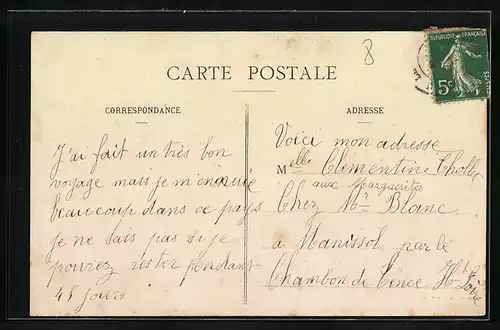 8
REPUBLIQUE FRANÇAISE
5c
CARTE POSTALE
CORRESPONDANCE
J'ai fait un très bon
voyage mais je m'ennuie
beaucoup dans ce pays
je ne sais pas si je
pouriez rester pendant
45 jours
ADRESSE
Voici mon adresse
Melle Clementine
aux Marguerites
Chez Mr Blanc
a Manissol par le
Chambon de Tence Hte Loire